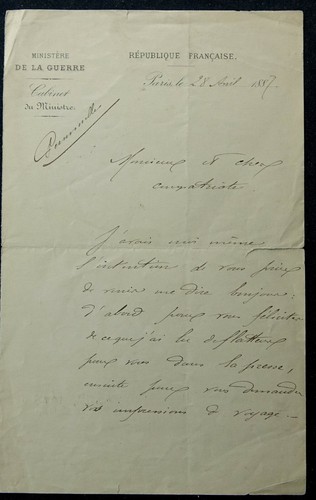 MINISTÈRE
DE LA GUERRE
Cabinet
du Ministre
RÉPUBLIQUE FRANÇAISE.
Paris, le 28 Avril 1887.
Personnelle
Monsieur et cher
compatriote
J'avais moi même
l'intention de vous prier
de venir me dire bonjour:
d'abord pour vous féliciter
de ce que j'ai lu de flatteur
pour vous dans la presse,
ensuite pour vous demander
vos impressions de voyage —